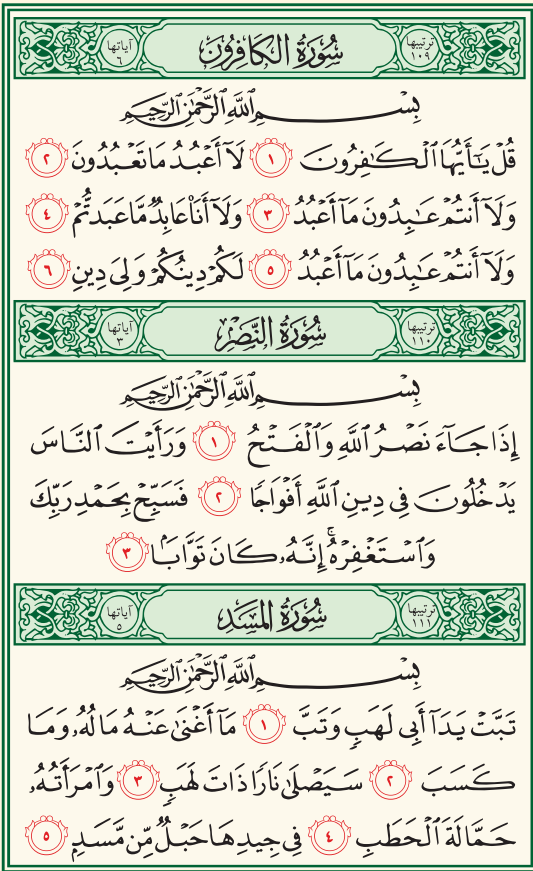 ترتيبها ١٠٩ سُورَةُ الكَافِرُونَ آياتها ٦
بِسْمِ ٱللَّهِ ٱلرَّحْمَٰنِ ٱلرَّحِيمِ
قُلْ يَـٰٓأَيُّهَا ٱلْكَـٰفِرُونَ ١ لَآ أَعْبُدُ مَا تَعْبُدُونَ ٢
وَلَآ أَنتُمْ عَـٰبِدُونَ مَآ أَعْبُدُ ٣ وَلَآ أَنَا۠ عَابِدٌ مَّا عَبَدتُّمْ ٤
وَلَآ أَنتُمْ عَـٰبِدُونَ مَآ أَعْبُدُ ٥ لَكُمْ دِينُكُمْ وَلِىَ دِينِ ٦
ترتيبها ١١٠ سُورَةُ النَّصْرِ آياتها ٣
بِسْمِ ٱللَّهِ ٱلرَّحْمَٰنِ ٱلرَّحِيمِ
إِذَا جَآءَ نَصْرُ ٱللَّهِ وَٱلْفَتْحُ ١ وَرَأَيْتَ ٱلنَّاسَ
يَدْخُلُونَ فِى دِينِ ٱللَّهِ أَفْوَاجًا ٢ فَسَبِّحْ بِحَمْدِ رَبِّكَ
وَٱسْتَغْفِرْهُ ۚ إِنَّهُۥ كَانَ تَوَّابًۢا ٣
ترتيبها ١١١ سُورَةُ المَسَدِ آياتها ٥
بِسْمِ ٱللَّهِ ٱلرَّحْمَٰنِ ٱلرَّحِيمِ
تَبَّتْ يَدَآ أَبِى لَهَبٍ وَتَبَّ ١ مَآ أَغْنَىٰ عَنْهُ مَالُهُۥ وَمَا
كَسَبَ ٢ سَيَصْلَىٰ نَارًا ذَاتَ لَهَبٍ ٣ وَٱمْرَأَتُهُۥ
حَمَّالَةَ ٱلْحَطَبِ ٤ فِى جِيدِهَا حَبْلٌ مِّن مَّسَدٍۭ ٥